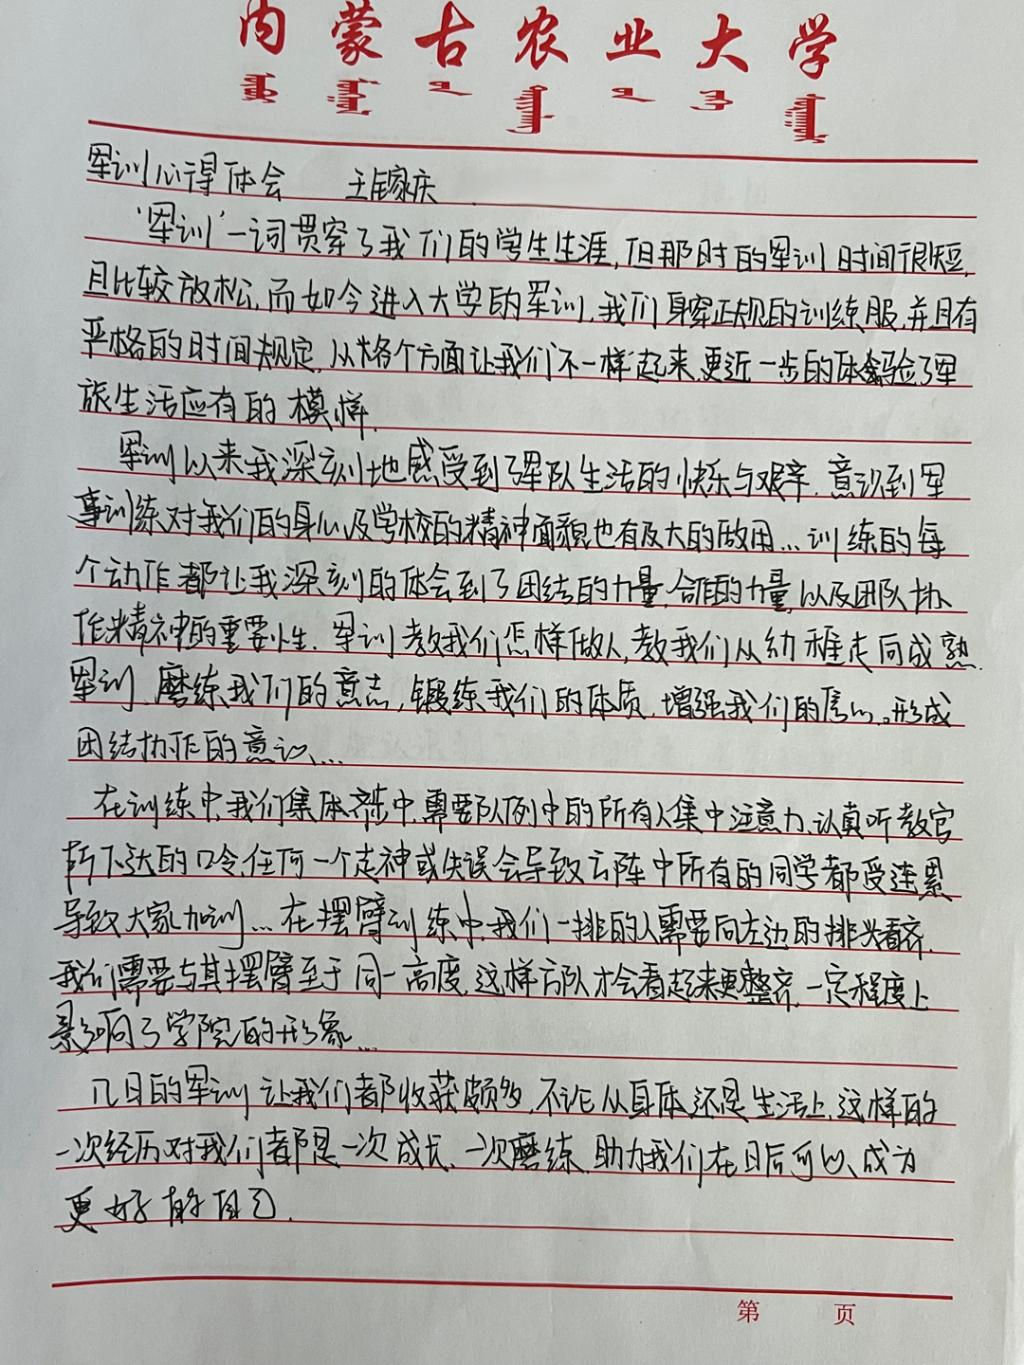 内蒙古农业大学
军训心得体会 王家庆
“军训”一词贯穿了我们的学生生涯，但那时的军训时间很短，
且比较放松，而如今进入大学的军训，我们身穿正规的训练服，并且有
严格的时间规定，从各个方面让我们不一样起来，更近一步的体验了军
旅生活应有的模样.
军训以来我深刻地感受到了军队生活的快乐与艰辛.意识到军
事训练对我们的身心及学校的精神面貌也有及大的做用...训练的每
个动作都让我深刻的体会到了团结的力量，合作的力量，以及团队协
作精神的重要性.军训教我们怎样做人，教我们从幼稚走向成熟.
军训、磨练我们的意志，锻练我们的体质，增强我们的信心。形成
团结协作的意识...
在训练中，我们集体齐步中，需要队例中的所有人集中注意力，认真听教官
所下达的口令，任何一个走神或失误会导致方阵中所有的同学都受连累
导致大家加训...在摆臂训练中，我们一排的人需要向左边的排头看齐，
我们需要与其摆臂至于同一高度，这样方队才会看起来更整齐，一定程度上
影响了学院的形象...
几日的军训让我们都收获颇多，不论从身体还是生活上，这样的
一次经历对我们都是一次成长、一次磨练，助力我们在日后可以成为
更好的自己.
第 页